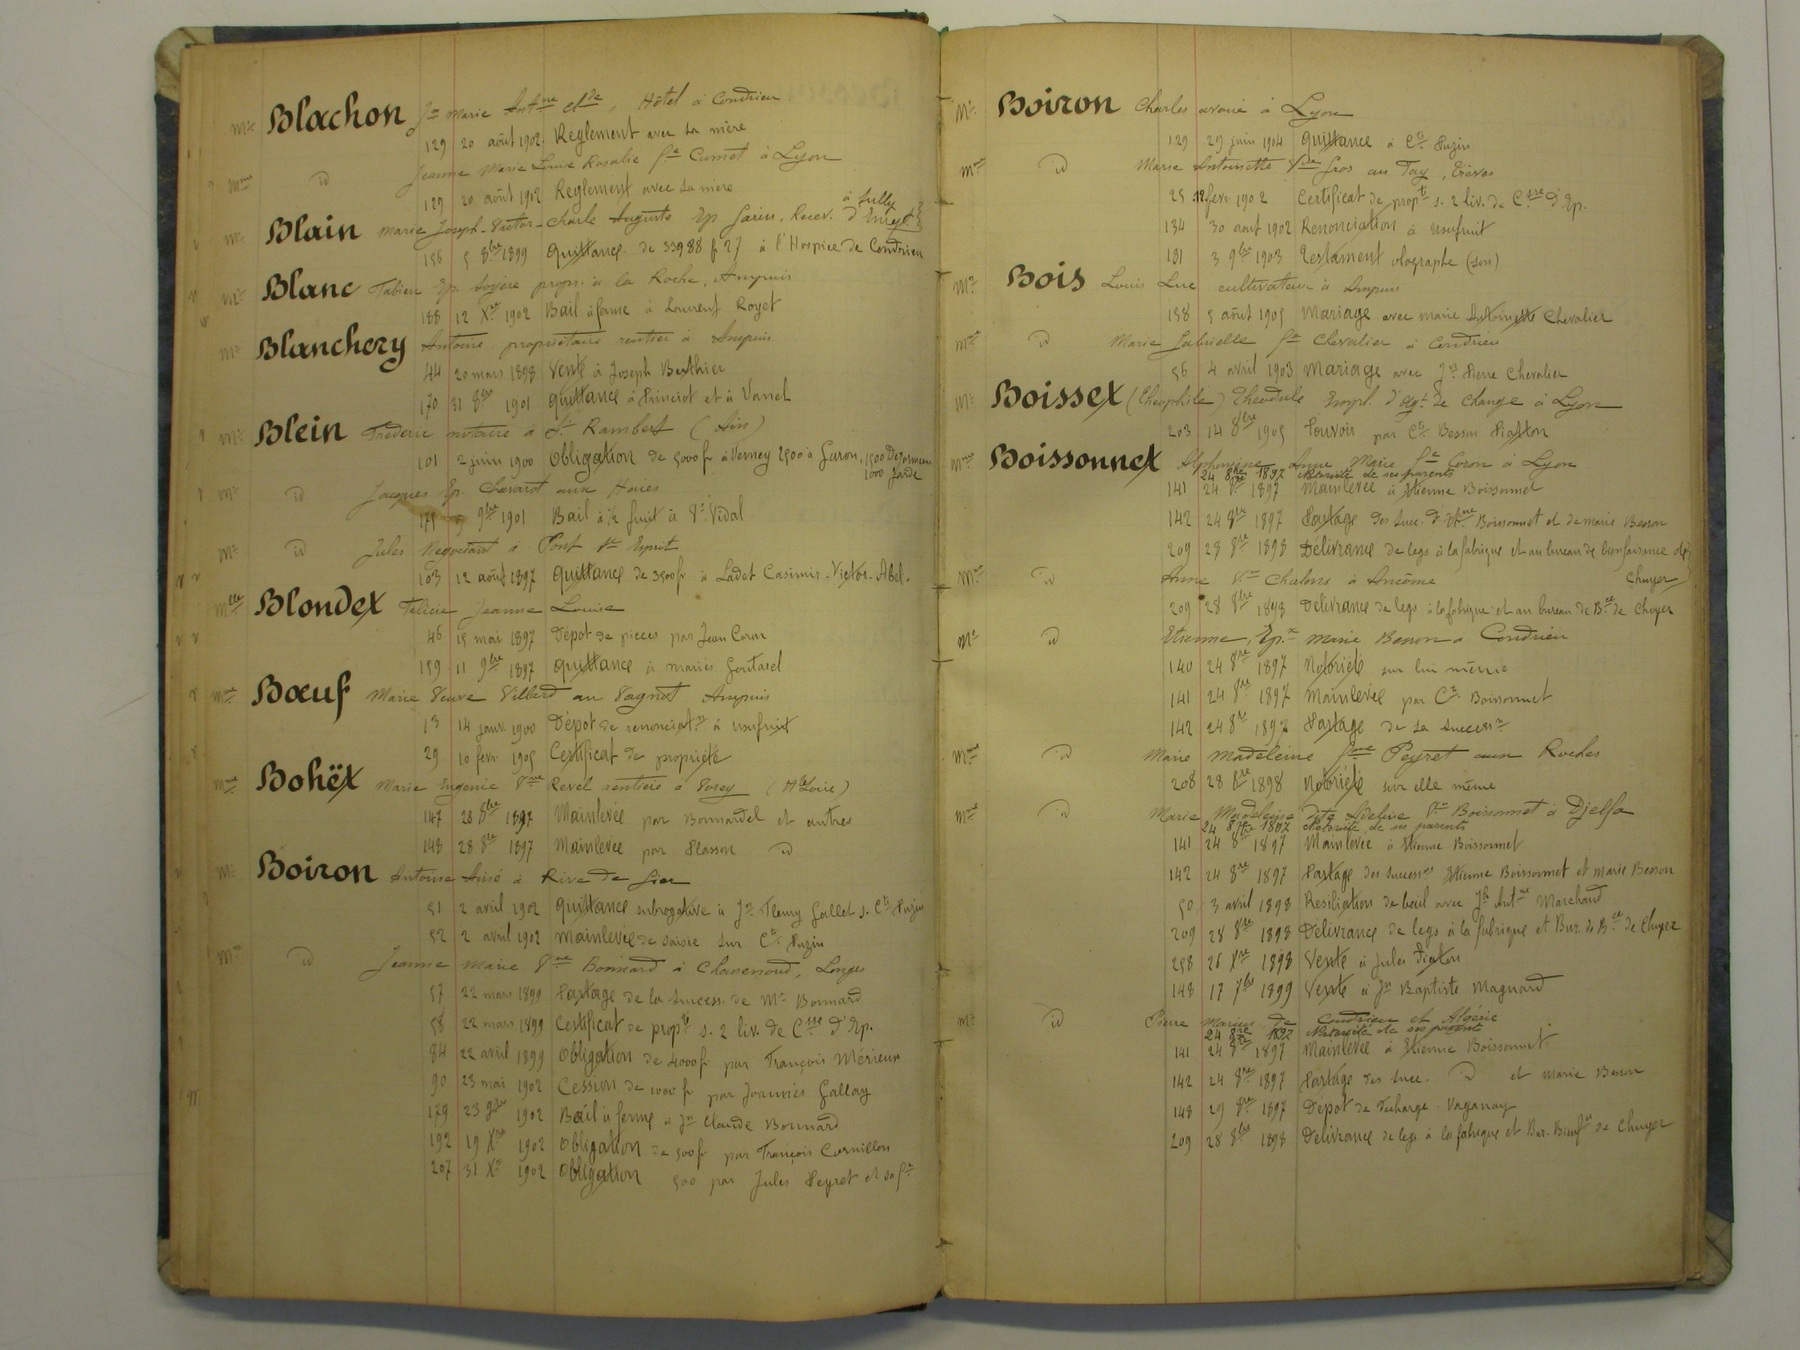 Mr Blachon Jn Marie Antne Cde, Hôtel à Condrieu
129 20 août 1902 Règlement avec sa mère
Mme id Jeanne Marie Louise Rosalie fe Cumot à Lyon
129 20 août 1902 Règlement avec sa mère
à Sully
Mr Blain Marie Joseph-Victor-Charle Auguste Ep Garin, Recev. d'Enregt
156 5 8bre 1899 Quittance de 33988 f 27 à l'Hospice de Condrieu
Mr Blanc Fabien Ep. Soyère propre à la Roche, Ampuis
188 12 Xre 1902 Bail à ferme à Laurent Royet
Mr Blanchery Antoine propriétaire rentier à Ampuis
44 20 mars 1898 Vente à Joseph Berthier
170 31 8bre 1901 Quittance à Princiot et à Vanel
Mr Blein Frédéric notaire à St Rambert (Ain)
101 2 juin 1900 Obligation de 5000 f à Verney 2500 à Garon, 1500
1000 Jarde
Mr id Jacques Ep. Chavarot aux Haies
171 9bre 1901 Bail à ½ fruit à Vidal
Mr id Jules Négociant à Pont St Esprit
103 12 août 1897 Quittance de 3500 f à Ladet Casimir-Victor-Abel.
Mlle Blondet Félicie Jeanne Louise
46 15 mai 1897 Dépôt de pièces par Jean Caron
159 11 9bre 1897 Quittance à mariés Goutarel
Mme Bœuf Marie Veuve Villard au Vagnot Ampuis
13 14 janv. 1900 Dépôt de renonciaton à usufruit
29 10 fevr. 1905 Certificat de propriété
Mme Bohët Marie Eugénie Vve Revel rentière à Vorey (Hte Loire)
147 28 8bre 1897 Mainlevée par Bonnardel et autres
148 28 8bre 1897 Mainlevée par Plasson id
Mr Boiron Antoine Aîné à Rive de Gier
51 2 avril 1902 Quittance subrogative à Jn Fleury Gallet s. Cte Puzin
52 2 avril 1902 Mainlevée de saisie sur Cte Puzin
Mme id Jeanne Marie Vve Bonnard à Chavanod, Longes
57 22 mars 1899 Partage de la success. de Mr Bonnard
58 22 mars 1899 Certificat de propté s. 2 liv. de Csse d'Ep.
84 22 avril 1899 Obligation de 4000 f par François Mérieux
90 23 mai 1902 Cession de 1000 f par Joannès Gallay
179 23 9bre 1902 Bail à ferme à Jn Claude Bonnard
192 19 Xre 1902 Obligation de 500 f par François Cornillon
207 31 Xre 1902 Obligation 500 par Jules Peyret et sa fe
Mr Boiron Charles avoué à Lyon
129 29 juin 1904 Quittance à Cte Puzin
Mme id Marie Antoinette Vve Gros au Tay, Trèves
25 12 fevr. 1902 Certificat de propté s. 2 liv. de Csse d'Ep.
134 30 aout 1902 Renonciation à usufruit
181 3 9bre 1903 Testament olographe (son)
Mr Bois Louis Luc cultivateur à Ampuis
158 5 août 1905 Mariage avec Marie Antoinette Chevalier
Mme id Marie Gabrielle fe Chevalier à Condrieu
56 4 avril 1903 Mariage avec Jn Pierre Chevalier
Mr Boisset (Théophile) Théodule Empl. d'Agt de Change à Lyon
203 14 8bre 1905 Pouvoir par Cte Besson Piaton
Mme Boissonnet Alphonsine Anne Marie fe Coron à Lyon
24 8bre 1897 Notoriété de ses parents
141 24 8re 1897 Mainlevée à Etienne Boissonnet
142 24 8re 1897 Partage des succ. d'Etne Boissonnet et de Marie Besson
209 28 8re 1898 Délivrance de legs à la fabrique et au bureau de bienfaisance de
Chuyer
Mme id Anne Vve Chalons à Ancône
209 28 8bre 1898 Délivrance de legs à la fabrique et au bureau de Bce de Chuyer
Mr id Etienne, Ep.x Marie Besson à Condrieu
140 24 8re 1897 Notoriété sur lui même
141 24 8re 1897 Mainlevée par Cts Boissonnet
142 24 8re 1897 Partage de sa successn
Mme id Marie Madeleine fme Peyret aux Roches
208 28 8re 1898 Notoriété sur elle même
Mme id Marie Madeleine dite Adeline Vve Boissonnet à Djelfa
24 8re 1897 Notoriété de ses parents
141 24 8re 1897 Mainlevée à Etienne Boissonnet
142 24 8re 1897 Partage des successns Etienne Boissonnet et Marie Besson
50 3 avril 1898 Résiliation de bail avec Jh Antne Marchand
209 28 8re 1898 Délivrance de legs à la fabrique et Bur. de Bce de Chuyer
258 26 Xre 1898 Vente à Jules Piaton
148 17 7bre 1899 Vente à Jn Baptiste Magnard
Mr id Pierre Marius de Condrieu et Algérie
24 8re 1897 Notoriété de ses parents
141 24 8re 1897 Mainlevée à Etienne Boissonnet
142 24 8re 1897 Partage des succ. id et Marie Besson
148 29 8re 1897 Dépôt de décharge Vaganay
209 28 8bre 1898 Délivrance de legs à la fabrique et Bur. Bienfce de Chuyer